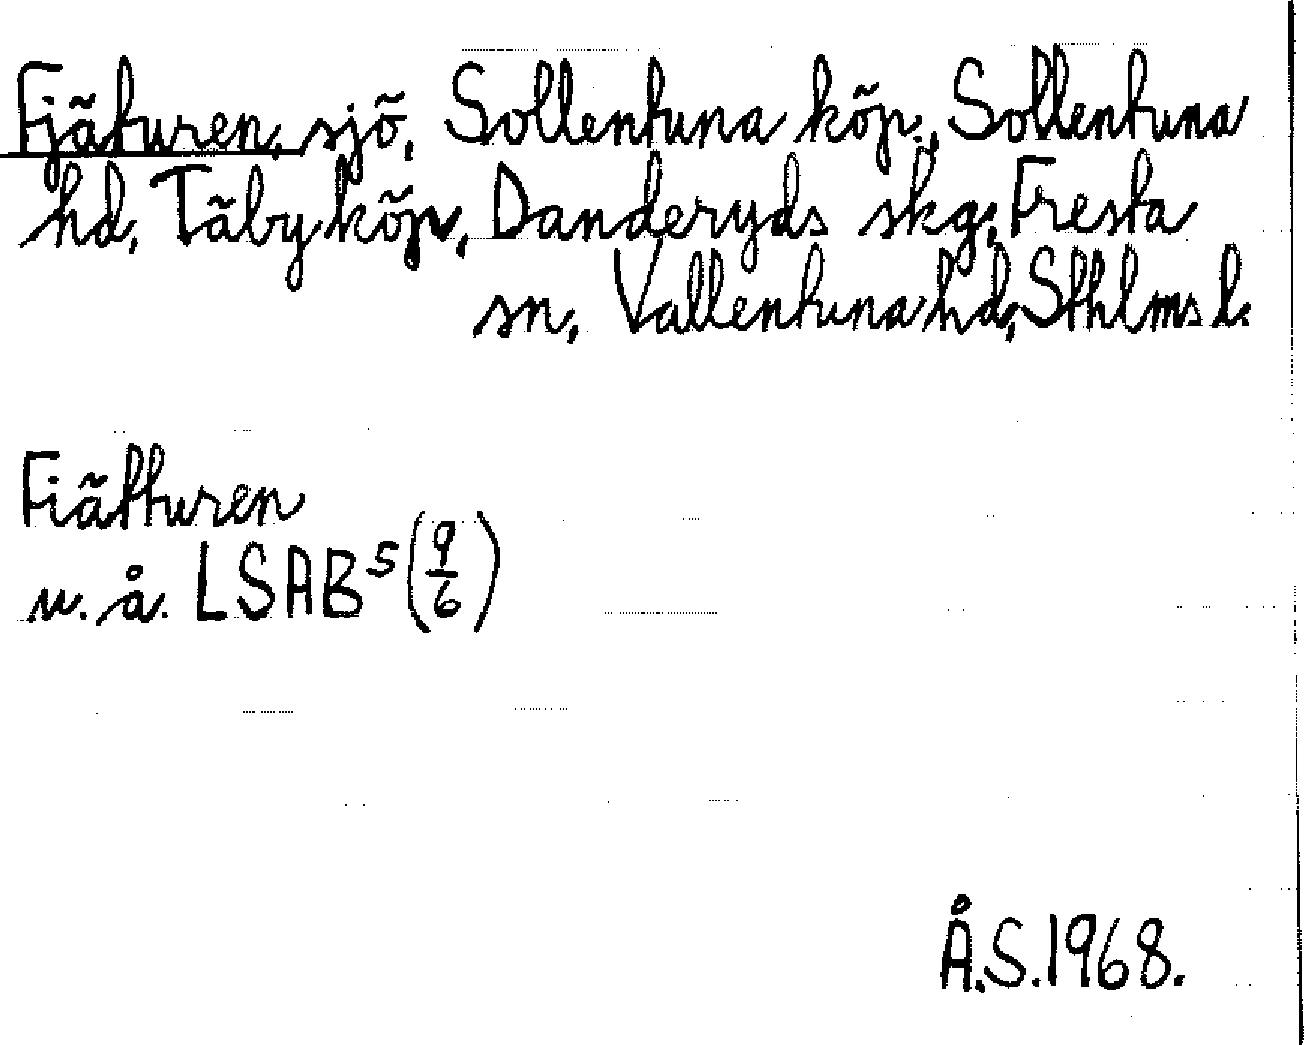 Fjäturen, sjö, Sollentuna köp., Sollentuna
hd, Täby köp, Danderyds skg, Fresta
sn, Vallentuna hd, Sthlms l.
Fiätturen
u. å. LSAB⁵ (9/6)
Å.S. 1968.